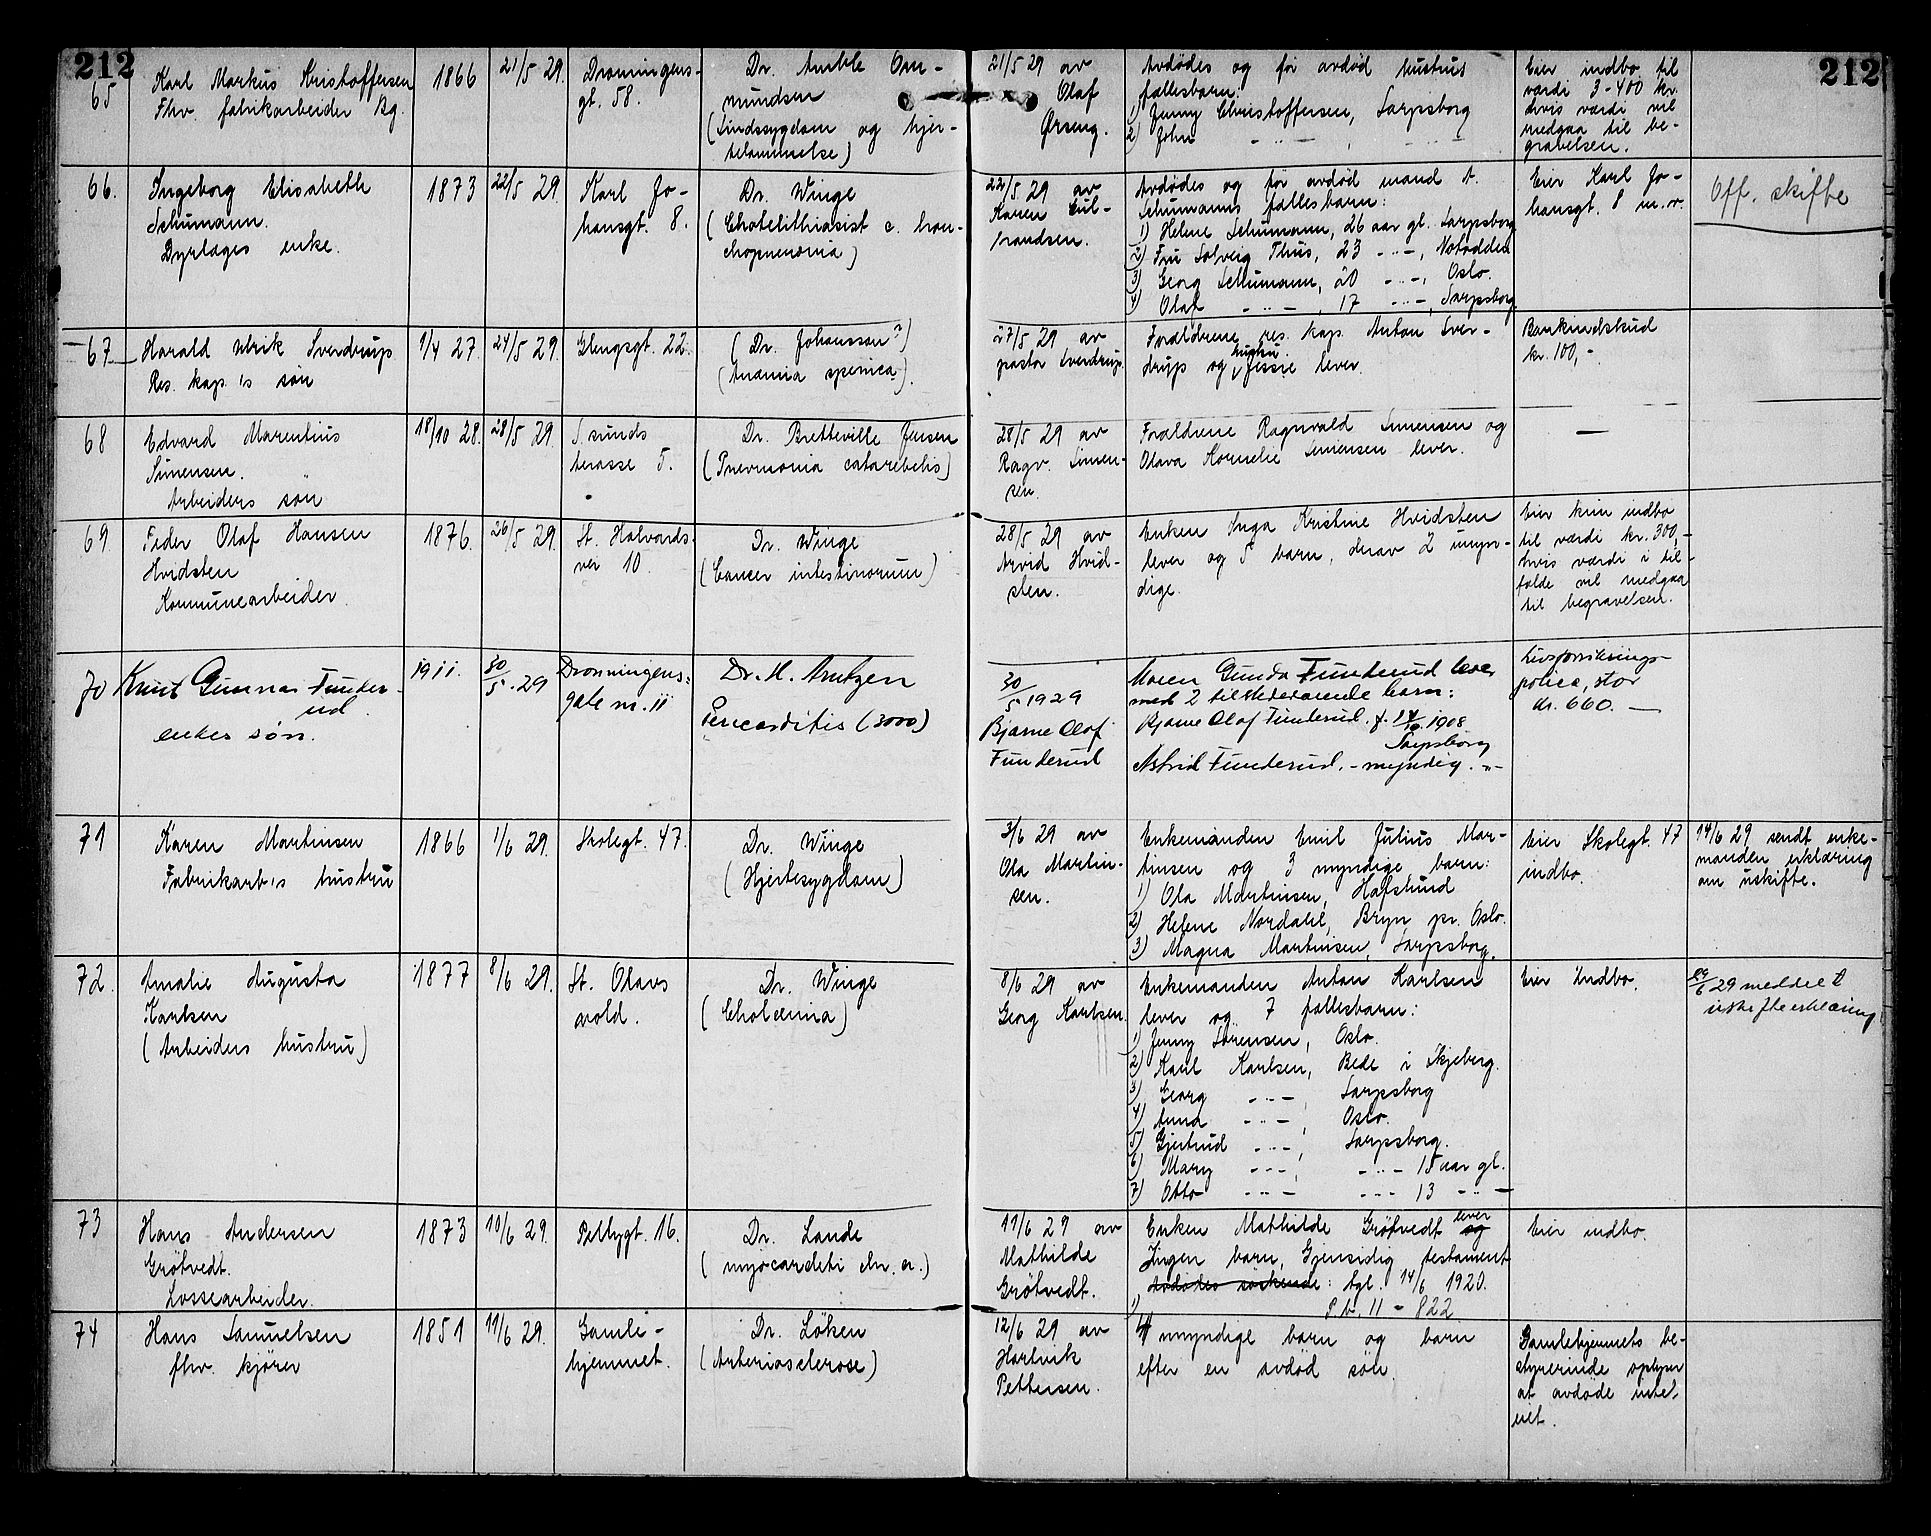 212
212
65
Karl Markus Kristoffersen
Fhv. fabrikarbeider Bg.
1866
21/5 29.
Dronningens-
gt. 58.
Dr. Amble Om-
mundsen
(Sindssygdom og hjer-
telammelse)
21/5 29 av
Olaf
Ørseng.
Avdødes og før avdød hustrus
fællesbarn:
1) Jenny Christoffersen, Sarpsborg
2) John -"- , -"-
Eier indbo til
værdi 3-400 kr.
hvis værdi vil
medgaa til be-
gravelsen.
66.
Ingeborg Elisabeth
Schumann.
Dyrlæges enke.
1873
22/5 29.
Karl Jo-
hansgt. 8.
Dr. Winge
(Cholelithiasist c. bron-
chopneuonia)
22/5 29 av
Karen Gul-
brandsen.
Avdødes og før avdød mand t.
Schumanns fællesbarn:
1) Helene Schumann, 26 aar gl. Sarpsborg
2) Fru Solveig Thus, 23 -"-, Notodden
3) Georg Schumann, 20 -"-, Oslo.
4) Olaf -"-, 17 -"-, Sarpsborg
Eier Karl Jo-
hansgt. 8 m.v.
Off. skifte
67
Harald Ulrik Sverdrup
Res. kap.'s søn
1/4 27.
24/5 29.
Glengsgt. 22.
(Dr. Johanssen?)
(Anæmia spenica).
27/5 29 av
pastor Sverdrup
Forældrene, res. kap. Anton Sver-
drup og hustru Jessie lever.
Bankindskud
kr. 100,-
68
Edvard Marentius
Simensen.
Arbeiders søn
18/10 28.
28/5 29.
S.sunds
terasse 5.
Dr. Bretteville Jensen
(Pnevmonia catarebelis)
28/5 29 av
Ragv. Simen-
sen.
Forældrene Ragnvald Simensen og
Olava Kornelie Simensen lever.
—
69
Peder Olaf Hansen
Hvidsten
Kommunearbeider.
1876.
26/5 29.
St. Halvards-
vei 10.
Dr. Winge
(Cancer intestinorum)
28/5 29 av
Arvid Hvid-
sten.
Enken Inga Kristine Hvidsten
lever og 5 barn, derav 2 umyn-
dige.
Eier kun indbo
til værdi kr. 300,-
hvis værdi i til-
fælde vil medgaa
til begravelsen.
70
Knut Gunnar Funder-
ud.
enkes søn.
1911.
30/5. 29
Dronningens:
gate nr. 11
Dr. H. Arntzen
Pericarditis (3000)
30/5 1929
Bjarne Olaf
Funderud
Maren Gunda Funderud lever
med 2 tilstedeværende barn:
Bjarne Olaf Funderud. f. 14/10. 1908
Sarpsborg
Astrid Funderud. - myndig. -"-
Livsforsikrings-
police, stor
kr. 660. —
71
Karen Martinsen
Fabrikarb.'s hustru
1866
1/6 29.
Skolegt. 47.
Dr. Winge
(Hjertesygdom)
3/6 29 av
Ola Martin-
sen.
Enkemanden Emil Julius Mar-
tinsen og 3 myndige barn:
1) Ola Martinsen, Hafslund
2) Helene Nordahl, Bryn pr. Oslo.
3) Magna Martinsen, Sarpsborg.
Eier Skolegt. 47
indbo.
14/6 29 sendt enke-
manden erklæring
om uskifte.
72.
Amalie Augusta
Karlsen
(Arbeiders hustru)
1877
8/6 29.
St. Olavs
vold.
Dr. Winge
(Cholæmia)
8/6 29 av
Georg Karlsen.
Enkemanden Anton Karlsen
lever og 7 fællesbarn:
1) Jenny Sørensen, Oslo.
2) Karl Karlsen, Bede i Skjeberg.
3) Georg -"-, Sarpsborg
4) Anna -"-, Oslo.
5) Gjertrud -"-, Sarpsborg.
6) Mary -"-, -"- 15 aar gl.
7) Otto -"- -"- 13 -"-
Eier Indbo.
29/6 29 meddelt
uskifteerklæring
73
Hans Andersen
Grötvedt.
Lossearbeider.
1873
10/6 29.
Peltbygt. 16.
Dr. Lande
(myocarditi chr. a.)
11/6 29 av
Mathilde
Grötvedt.
Enken Mathilde Grötvedt lever og
Ingen barn, Gjensidig testament
1) Avdødes søskende: tgl. 14/6 1920.
P.b. 11 - 822
Eier indbo.
74
Hans Samuelsen
fhv. kjører
1851
11/6 29.
Gamle-
hjemmet.
Dr. Löken
(Arteriosclerose)
12/6 29 av
Hartvik
Pettersen.
4 myndige barn og barn
efter en avdød søn.
Gamlehjemmets be-
styrerinde oplyser
at avdøde intet
eiet.